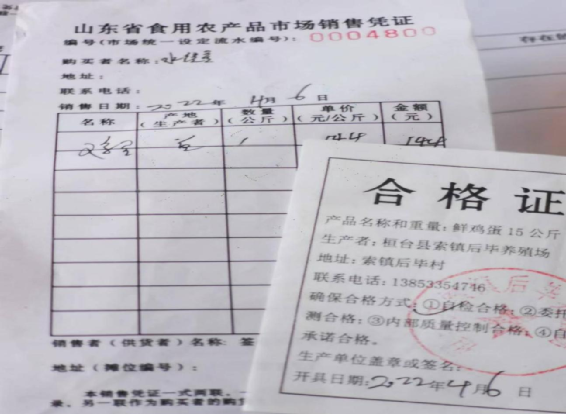 山东省食用农产品市场销售凭证
编号(市场统一设定流水编号): 0004800
购买者名称:
地址:
联系电话:
销售日期: 2022年 4月 6日
名称 产地(生产者) 数量(公斤) 单价(元/公斤) 金额(元)
1
销售者(供货者)名称: 签
地址(摊位编号):
本销售凭证一式两联,一
录,另一联作为购买者的购
合格证
产品名称和重量: 鲜鸡蛋 15公斤
生产者: 桓台县索镇后毕养殖场
地址: 索镇后毕村
联系电话: 13853354746
确保合格方式: ①自检合格; ②委托
测合格; ③内部质量控制合格; ④自
承诺合格。
生产单位盖章或签名:
开具日期: 2022年4月6日
存在